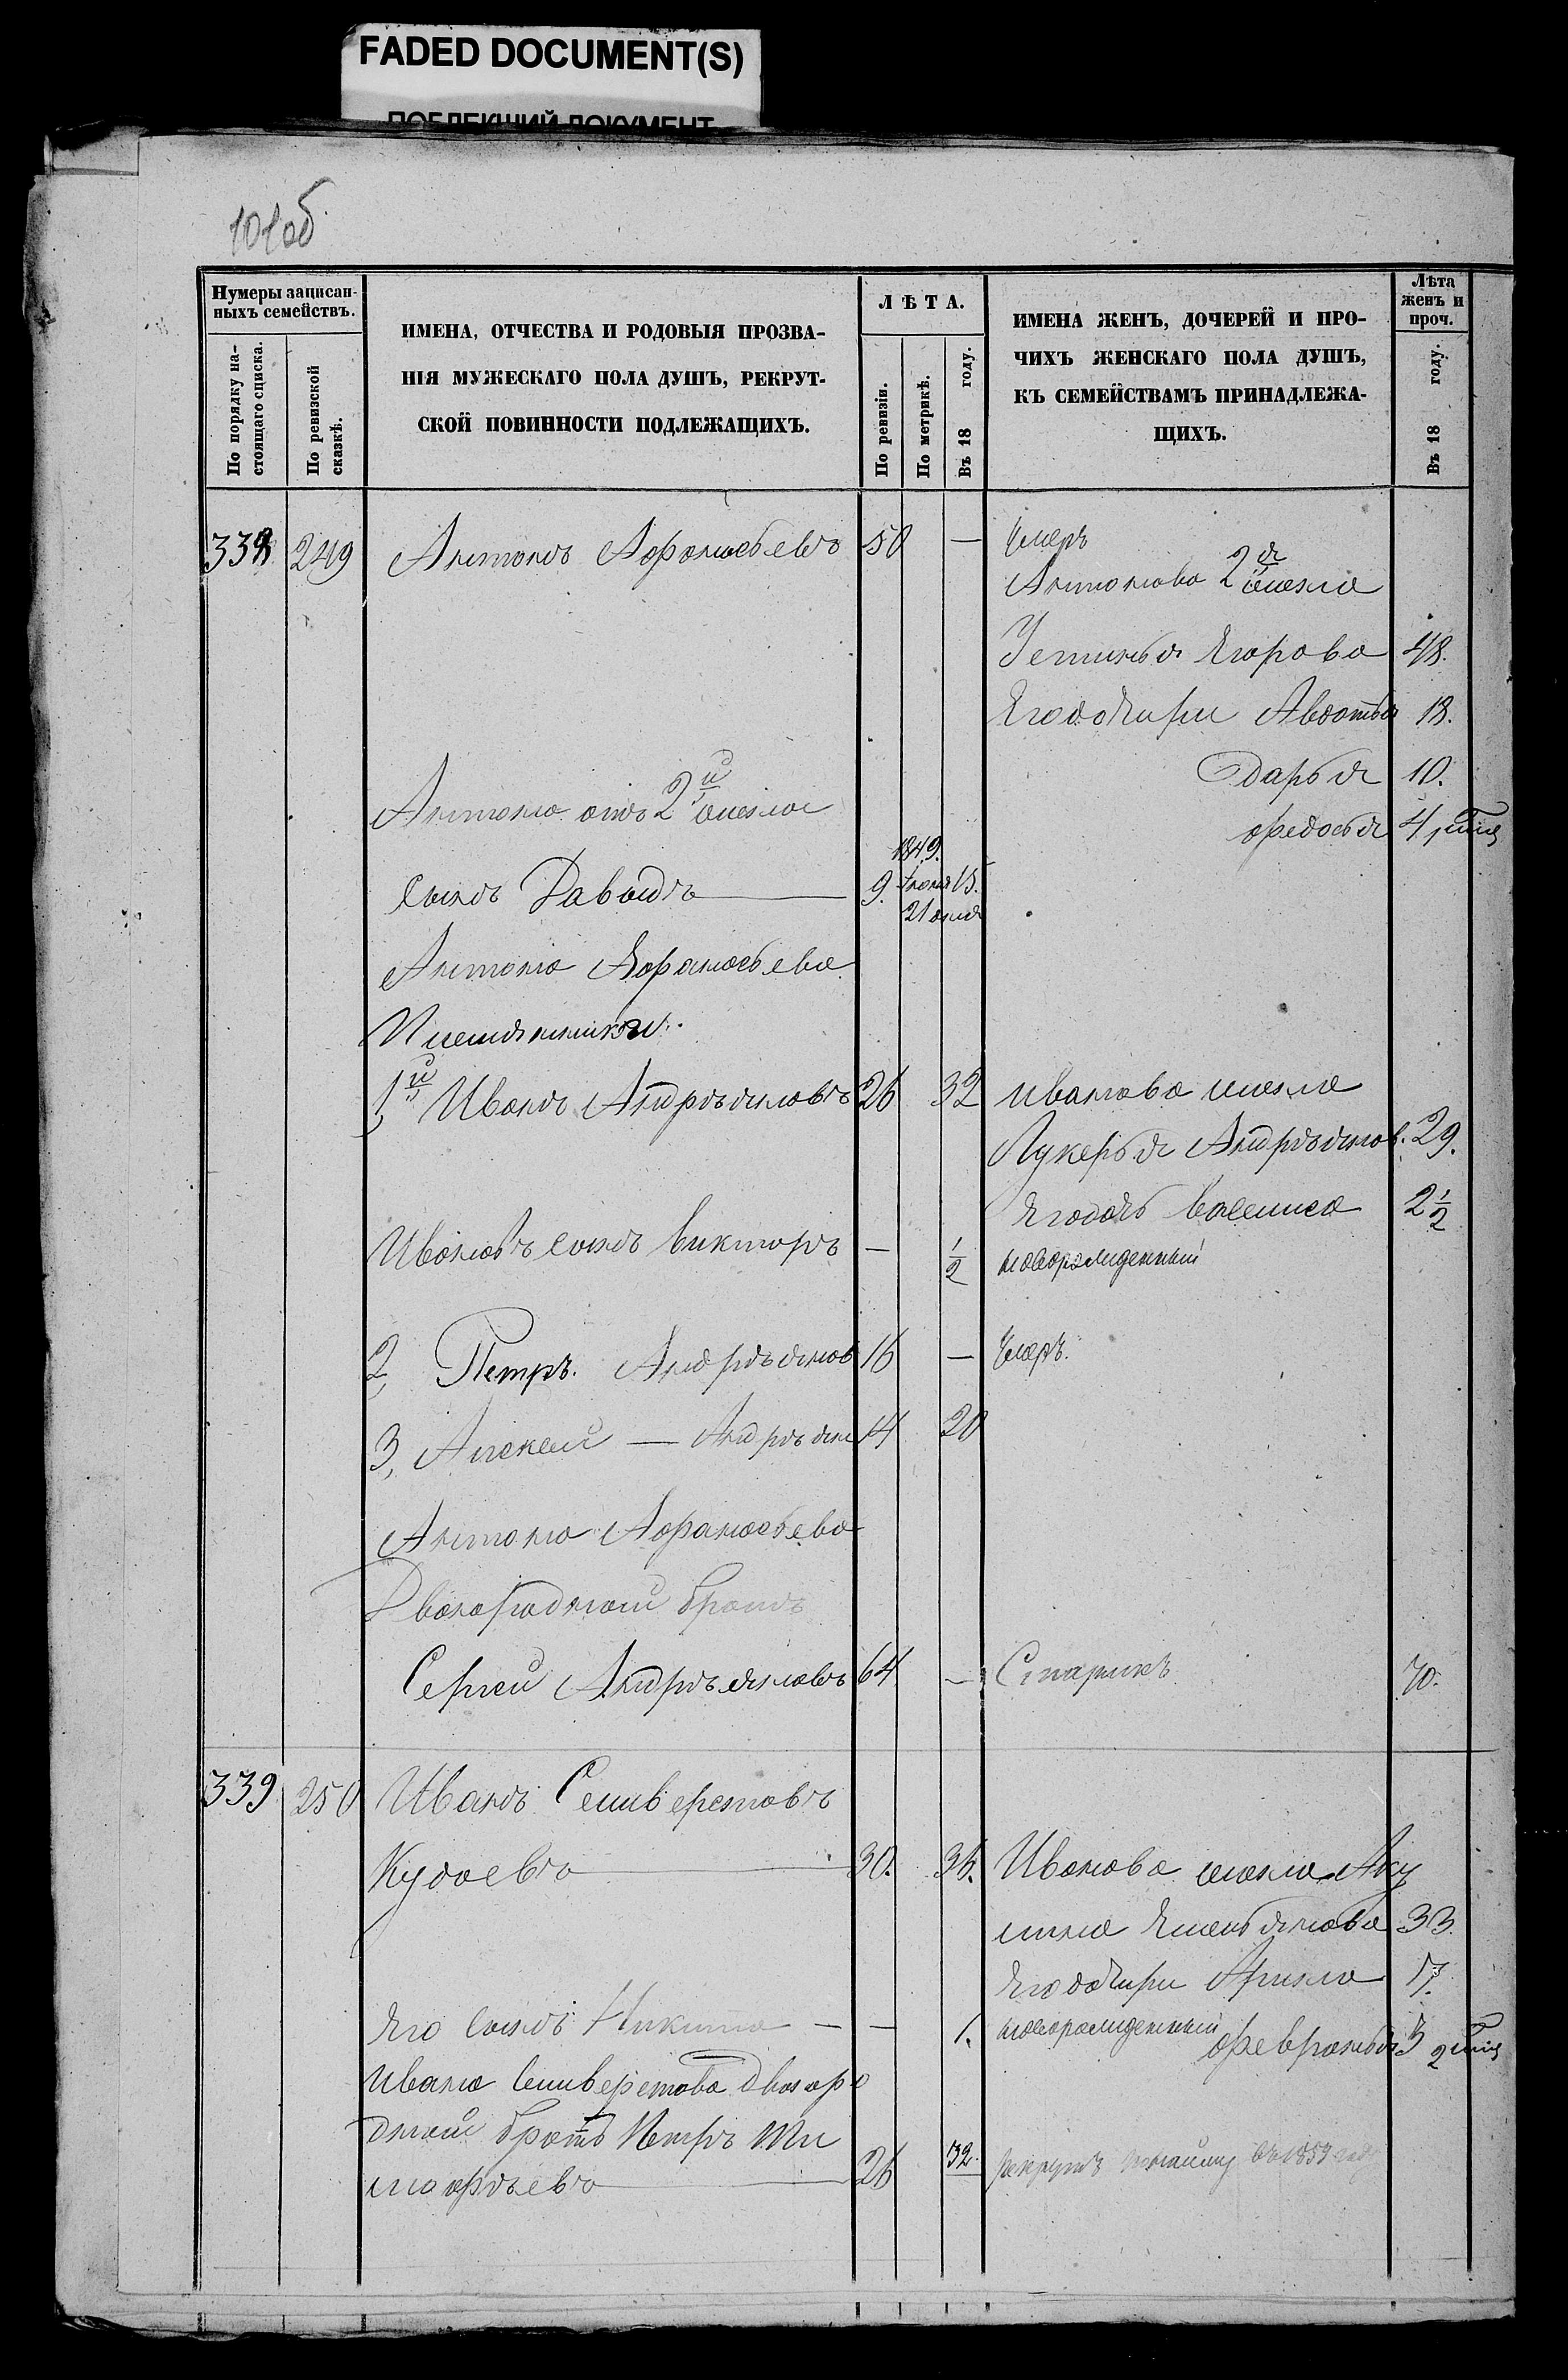 FADED DOCUMENT(S)
ПОБЛЕКШИЙ ДОКУМЕНТ
101об
Нумеры записан-
ныхъ семействъ.
По порядку на-
стоящаго списка.
По ревизской
сказкѣ.
ИМЕНА, ОТЧЕСТВА И РОДОВЫЯ ПРОЗВА-
НІЯ МУЖЕСКАГО ПОЛА ДУШЪ, РЕКРУТ-
СКОЙ ПОВИННОСТИ ПОДЛЕЖАЩИХЪ.
ЛѢТА.
По ревизіи.
По метрикѣ.
Въ 18 году.
ИМЕНА ЖЕНЪ, ДОЧЕРЕЙ И ПРО-
ЧИХЪ ЖЕНСКАГО ПОЛА ДУШЪ,
КЪ СЕМЕЙСТВАМЪ ПРИНАДЛЕЖА-
ЩИХЪ.
Лѣта
женъ и
проч.
Въ 18 году.
338 249 Антонъ Афанасьевъ 50 — Умеръ
Антонова 2я жена
Устинья Егорова 48.
Его дочери Авдотья 18.
Дарья 10.
Антона отъ 2й жены
Федосья 4
1849.
Сынъ Давыдъ — 9. Июня 15.
21 дня
Антона Афанасьева
Племянники.
1й Иванъ Андреяновъ 26 32 Иванова жена
Лукерья Андреянов. 29.
Его дочь Васелиса 2 1/2
Ивановъ сынъ Викторъ — 1/2 новорожденный
2, Петръ. Андреянов 16 — Умеръ.
3, Алексей — Андреян 14 20
Антона Афанасьева
Двоюродной братъ
Сергей Андреяновъ 64 — Старикъ 70.
339 250 Иванъ Селиверстовъ
Кудаевъ — 30. 36. Иванова жена Аку
лина Емельянова 33.
Его дочери Арина 17.
Его сынъ Никита — — 1. новорожденный
Февронья 3
Ивана Селиверстова двоюро
дной братъ Петръ Ти
мофеевъ — 26 32. рекрутъ въ 1853 году